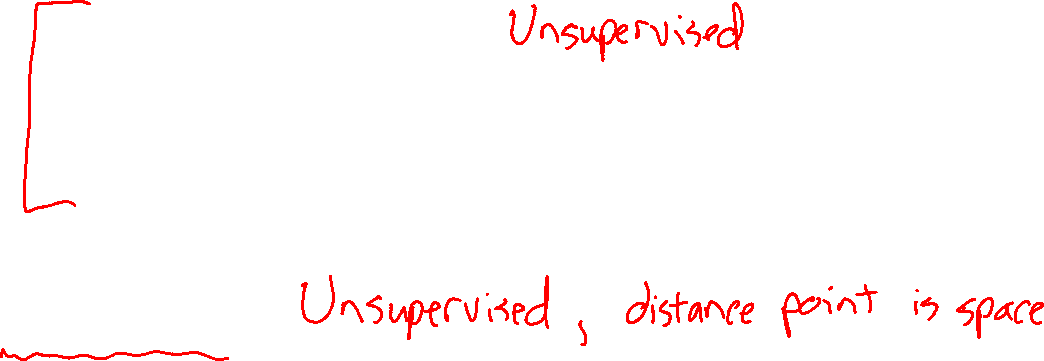 Unsupervised
Unsupervised, distance point is space